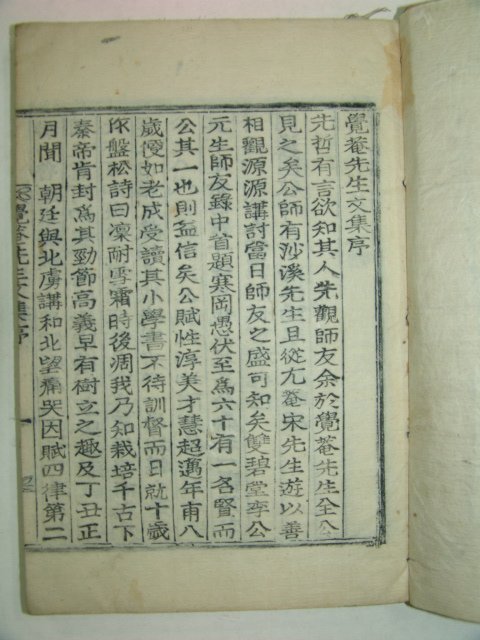 覺菴先生文集序
先哲有言欲知其人先觀師友余於覺菴先生全公
見之矣公師有沙溪先生且從尤菴宋先生遊以善
相觀源源講討當日師友之盛可知矣雙碧堂李公
元生師友錄中首題寒岡愚伏至爲六十有一各賢而
公其一也則益信矣公賦性淳美才慧超邁年甫八
歲儼如老成受讀其小學書不待訓督而日就十歲
咏盤松詩曰凜耐雪霜時後凋我乃知栽培千古下
秦帝肯封爲其勁節高義早有樹立之趣及丁丑正
月聞 朝廷與北虜講和北望痛哭因賦四律第二
覺菴先生文集序
一